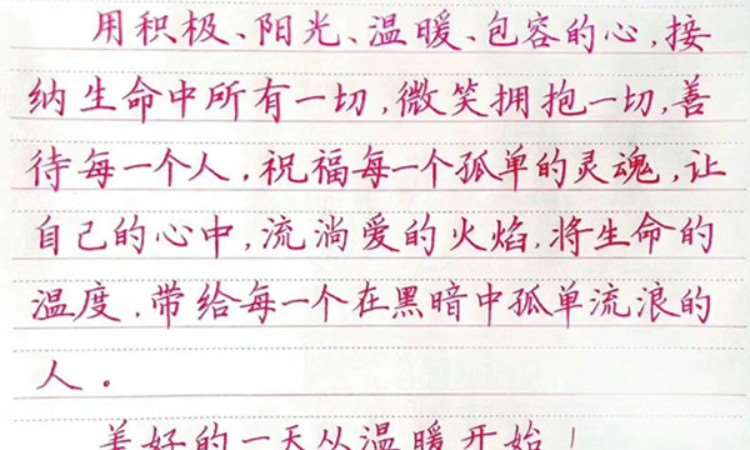 用积极、阳光、温暖、包容的心,接
纳生命中所有一切,微笑拥抱一切,善
待每一个人,祝福每一个孤单的灵魂,让
自己的心中,流淌爱的火焰,将生命的
温度,带给每一个在黑暗中孤单流浪的
人。
美好的一天从温暖开始!